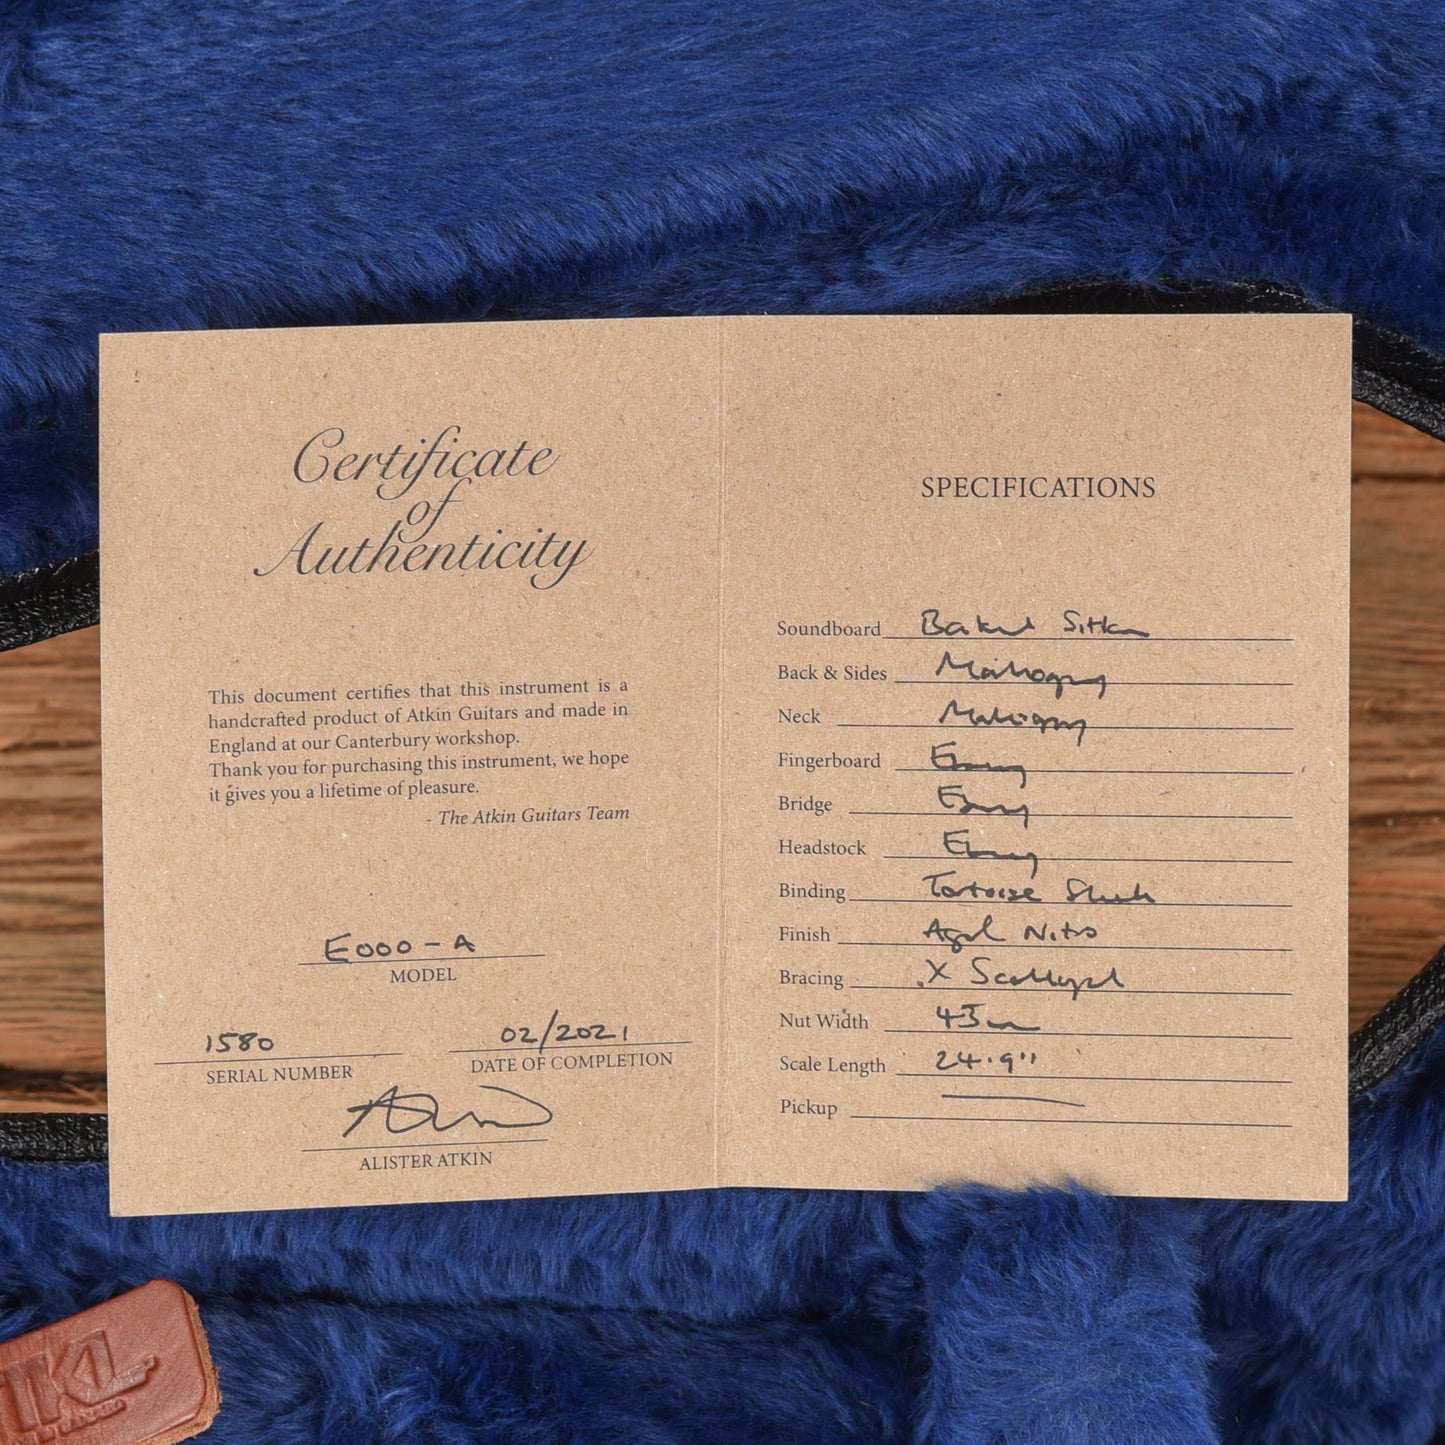 Certificate
of
Authenticity
This document certifies that this instrument is a
handcrafted product of Atkin Guitars and made in
England at our Canterbury workshop.
Thank you for purchasing this instrument, we hope
it gives you a lifetime of pleasure.
- The Atkin Guitars Team
E000-A
MODEL
1580
SERIAL NUMBER
02/2021
DATE OF COMPLETION
ALISTER ATKIN
SPECIFICATIONS
Soundboard Baked Sitka
Back & Sides Mahogany
Neck Mahogany
Fingerboard Ebony
Bridge Ebony
Headstock Ebony
Binding Tortoise Shell
Finish Aged Nitro
Bracing X Scalloped
Nut Width 43mm
Scale Length 24.9"
Pickup
TKL